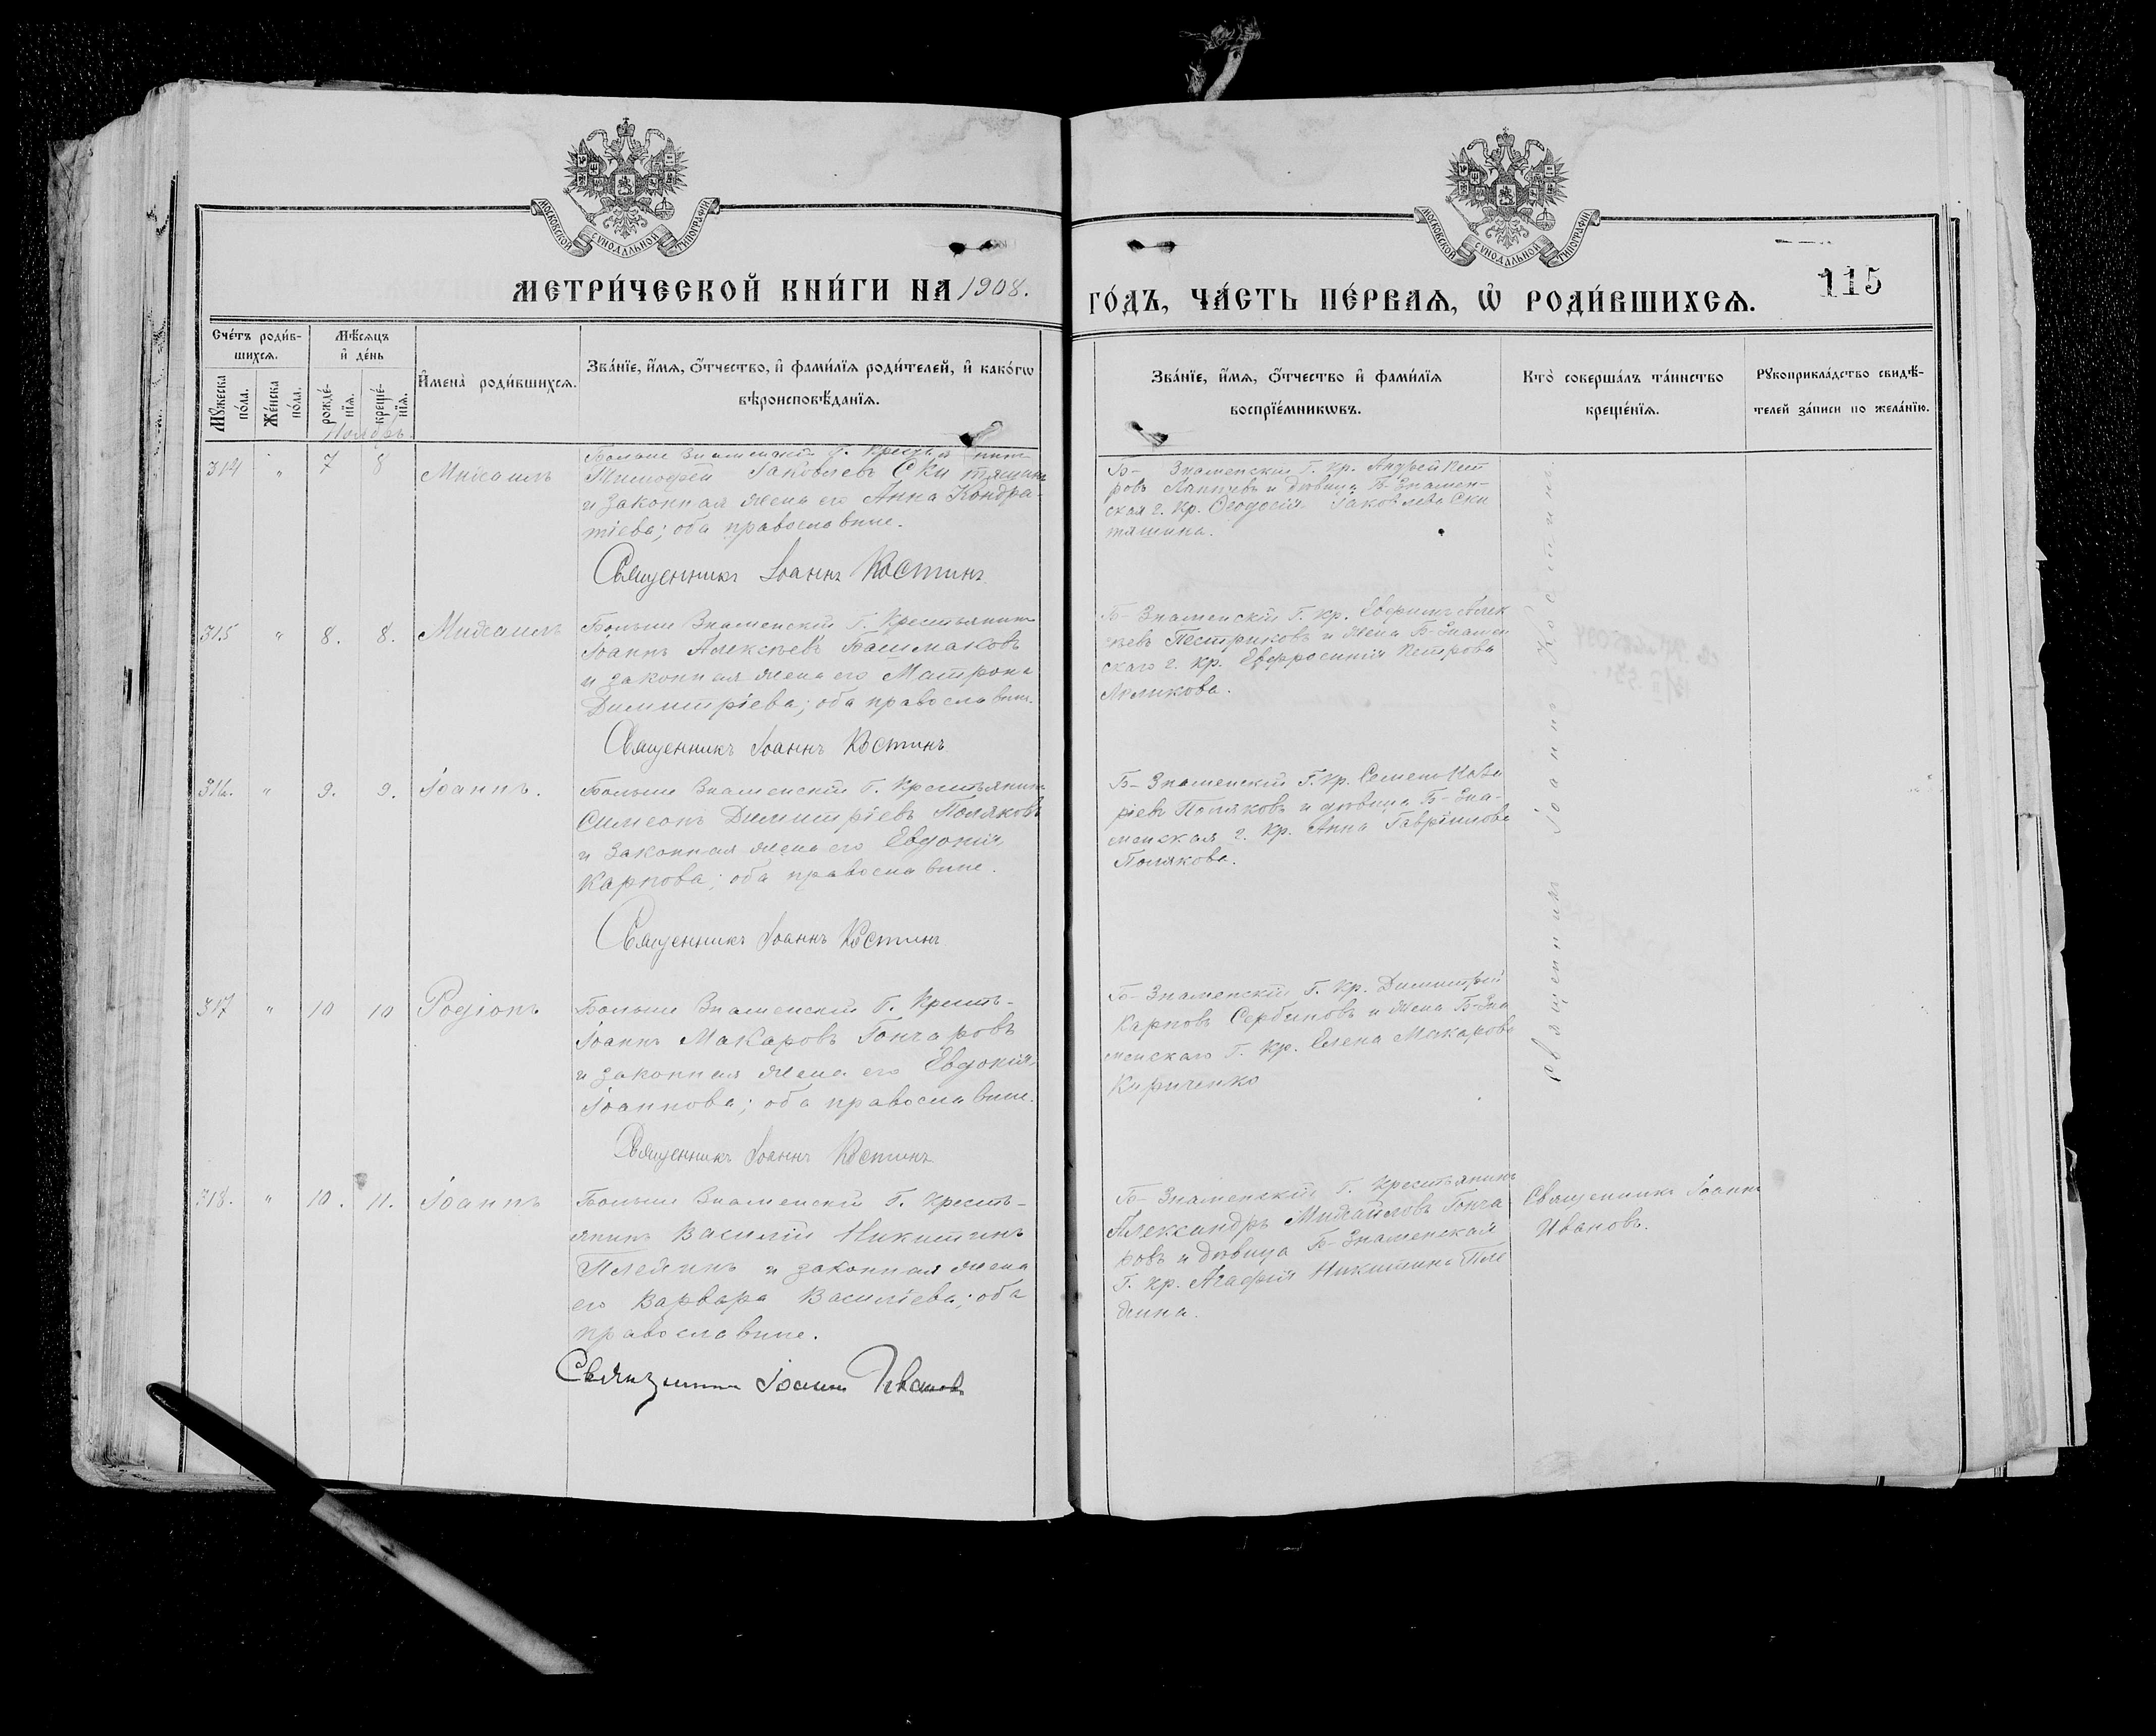 МОСКОВСКОЙ СѴНОДАЛЬНОЙ ТИПОГРАФІИ
МОСКОВСКОЙ СѴНОДАЛЬНОЙ ТИПОГРАФІИ
МЕТРИ́ЧЕСКОЙ КНИ́ГИ НА 1908.
ГО́ДЪ, ЧА́СТЬ ПЕ́РВАѦ, Ѡ҆ РОДИ́ВШИХСѦ.
115
Сче́тъ роди́в-
шихсѧ.
Мꙋ́жеска по́ла.
Же́нска по́ла.
Мѣ́сѧцъ
и҆ де́нь
рожде́-
нїѧ.
креще́-
нїѧ.
Ноябрь
И҆мена̀ роди́вшихсѧ.
Зва́нїе, и҆́мѧ, ѻ҆́тчество, и҆ фами́лїѧ роди́телей, и҆ како́гѡ
вѣроисповѣ́данїѧ.
Зва́нїе, и҆́мѧ, ѻ҆́тчество и҆ фами́лїѧ
воспрїе́мникѡвъ.
Кто̀ соверша́лъ та́инство
креще́нїѧ.
Рꙋкоприкла́дство свидѣ́-
телей за́писи по жела́нїю.
314 " 7 8 Михаилъ
Больше Знаменскій Г. Крестьянинъ
Тимофей Іаковлевъ Скитяшинъ
и законная жена его Анна Кондра-
тіева; оба православные.
Священникъ Іоаннъ Костинъ
Б- Знаменскій Г. Кр. Андрей Пет
ровъ и дѣвица Б-Знамен-
ская г. Кр. Ѳеодосія Іаковлева Ски
тяшина.
315 " 8. 8. Михаилъ
Больше Знаменскій Г. Крестьянинъ
Іоаннъ Алексѣевъ Башмаковъ
и законная жена его Матрона
Димитріева; оба православные.
Священникъ Іоаннъ Костинъ
Б- Знаменскій Г. Кр. Евфимъ Алек
сѣевъ Пестриковъ и жена Б-Знамен
скаго г. Кр. Евфросинія Петрова
316. " 9. 9. Іоаннъ.
Больше Знаменскій Г. Крестьянинъ
Симеонъ Димитріевъ Поляковъ
и законная жена его Евдокія
Карпова; оба православные.
Священникъ Іоаннъ Костинъ
Б- Знаменскій Г. Кр. Семенъ
ріевъ Поляковъ и дѣвица Б-Зна-
менская г. Кр. Анна Гавріилова
Полякова.
317 " 10 10 Родіонъ
Больше Знаменскій Г. Кресть-
Іоаннъ Макаровъ Гончаровъ
и законная жена его Евдокія
Іоаннова; оба православные.
Священникъ Іоаннъ Костинъ
Б- Знаменскій Г. Кр. Димитрій
Карповъ Сербиновъ и жена Б-Зна
менскаго Г. Кр. Елена Макарова
Кириченко
Священникъ Іоаннъ Костинъ.
318. " 10. 11. Іоаннъ
Больше Знаменскій Г. Кресть-
янинъ Василій Никитинъ
и законная жена
его Варвара Василіева; оба
православные.
Священникъ Іоаннъ Ивановъ
Б- Знаменскій Г. Крестьянинъ
Александръ Михайловъ Гонча
ровъ и дѣвица Б- Знаменской
Г. Кр. Агафія Никитина
Священникъ Іоаннъ
Ивановъ.